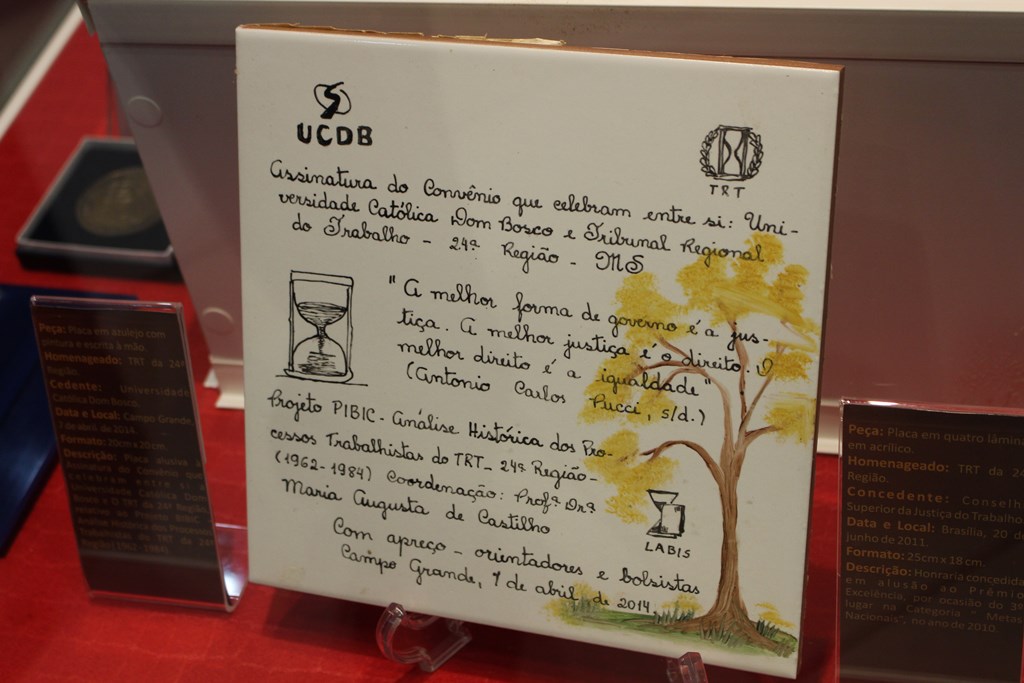 UCDB
TRT
Assinatura do Convênio que celebram entre si: Uni-
versidade Católica Dom Bosco e Tribunal Regional
do Trabalho - 24ª Região - MS
"A melhor forma de governo é a jus-
tiça. A melhor justiça é o direito. O
melhor direito é a igualdade"
(Antonio Carlos Pucci, s/d.)
Projeto PIBIC - Análise Histórica dos Pro-
cessos Trabalhistas do TRT - 24ª Região -
(1962-1984) Coordenação: Profª Drª
Maria Augusta de Castilho
LABIS
Com apreço - orientadores e bolsistas
Campo Grande, 7 de abril de 2014
Peça: Placa em azulejo com
pintura e escrita à mão.
Homenageado: TRT da 24ª
Região.
Cedente: Universidade
Católica Dom Bosco.
Data e Local: Campo Grande
7 de abril de 2014.
Formato: 20cm x 20cm.
Descrição: Placa alusiva a
Assinatura do Convênio que
celebram entre si
Peça: Placa em quatro lâmina
em acrílico.
Homenageado: TRT da 24
Região.
Concedente: Conselh
Superior da Justiça do Trabalho
Data e Local: Brasília, 20 de
junho de 2011.
Formato: 25cm x 18 cm.
Descrição: Honraria concedida
em alusão ao Prêmio
Excelência, por ocasião do 3º
lugar na Categoria " Metas
Nacionais", no ano de 2010.